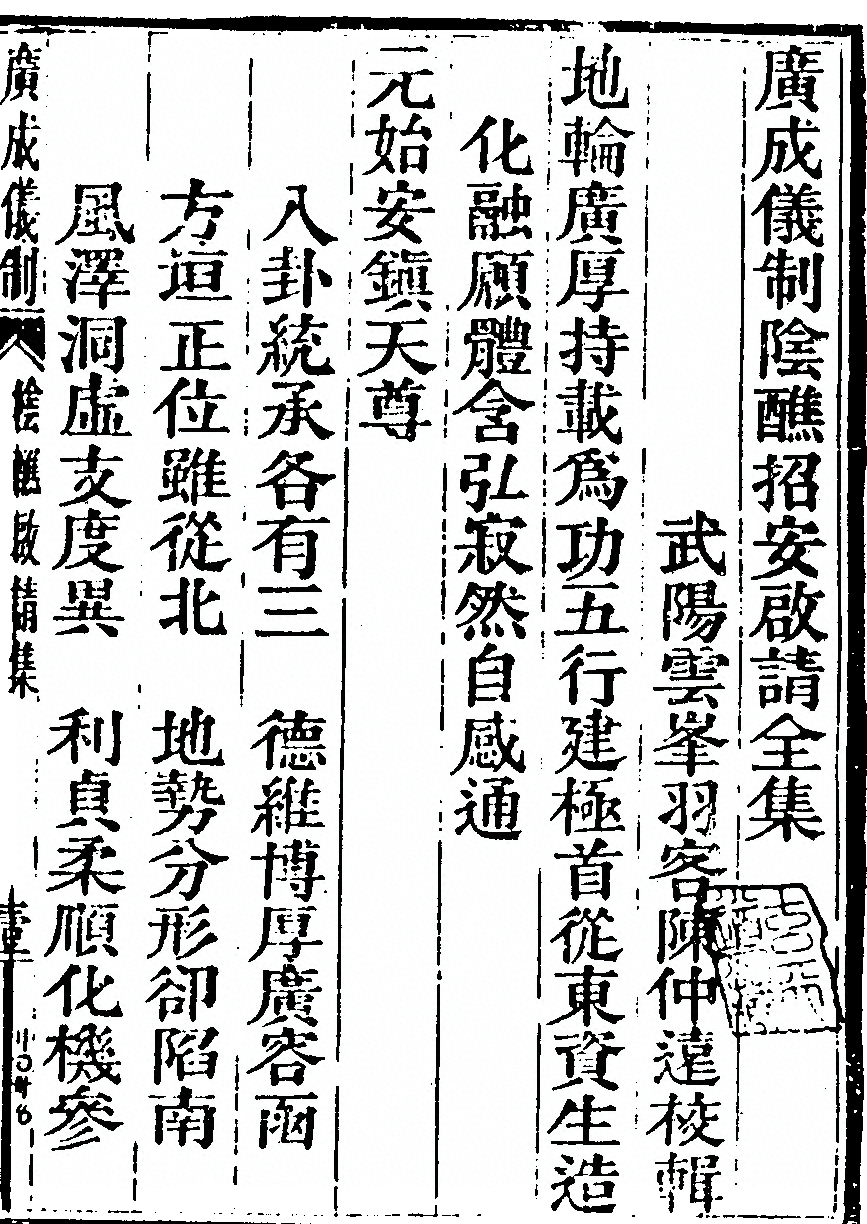 廣成儀制陰醮招安啟請全集
武陽雲峯羽客陳仲遠校輯
地輪廣厚持載爲功五行建極首從東資生造
化融願體含弘寂然自感通
元始安鎮天尊
八卦統承各有三　德維博厚廣容函
方垣正位雖從北　地勢分形卻陷南
風澤洞虛支度異　利貞柔順化機參
廣成儀制
醮啟請集
壹